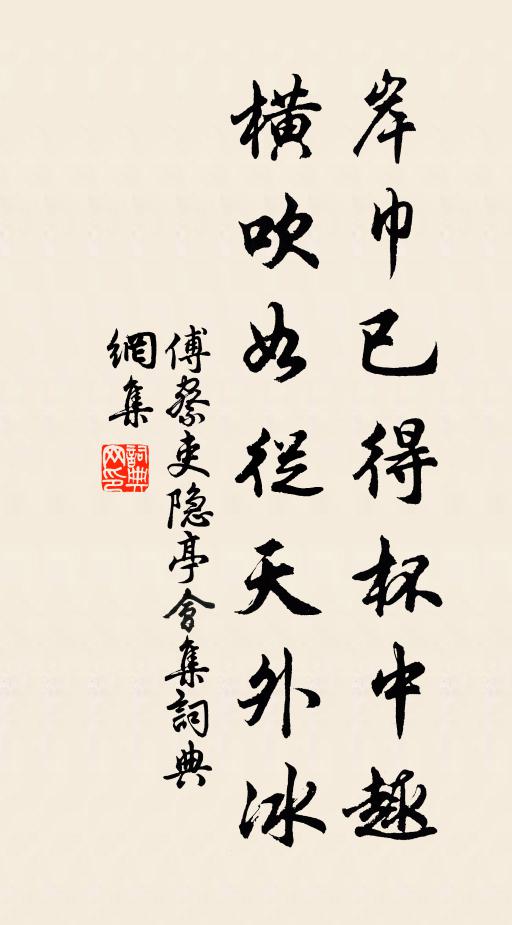 岸巾已得杯中趣
橫吹如從天外冰
傅察吏隐亭會集詞典
網集
詞典
网印